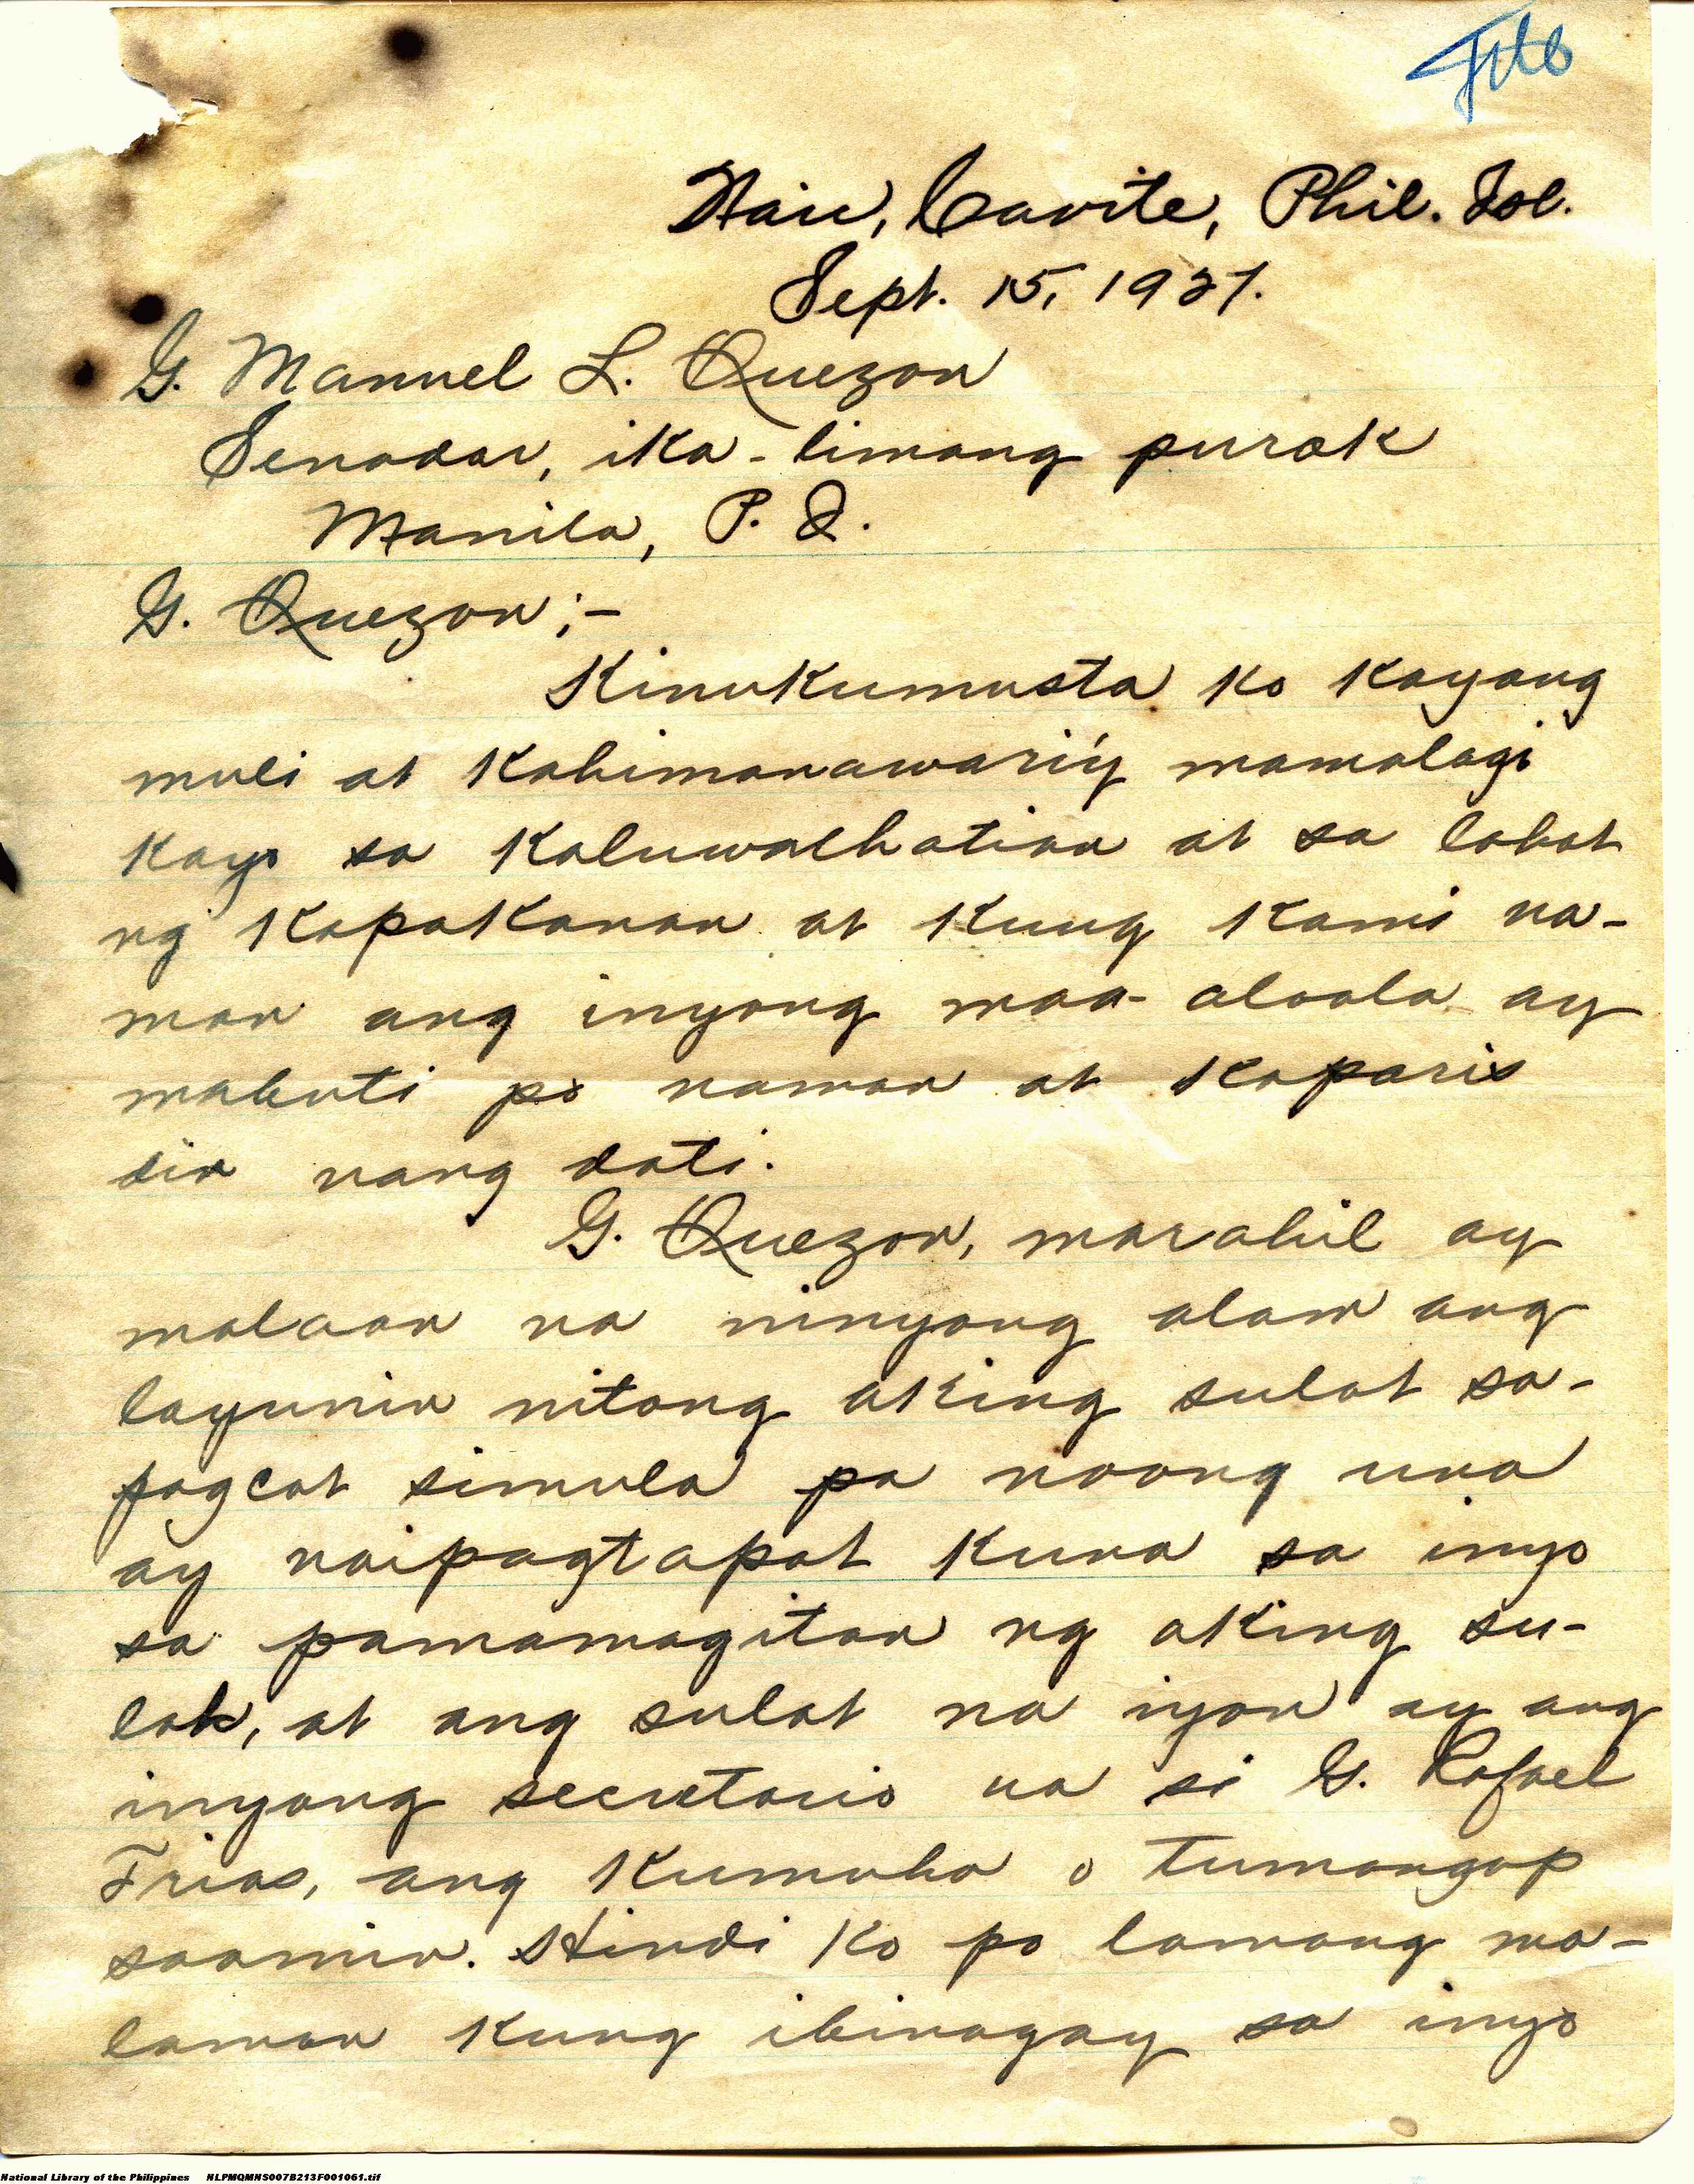 Naic, Cavite, Phil. Isl.
Sept. 15, 1927.
G. Manuel L. Quezon
Senador, ika-limang purok
Manila, P. I.
G. Quezon;-
Kinukumusta ko kayang
muli at kahimanawari'y mamalagi
kayo sa kaluwalhatian at sa lahat
ng kapakanan at kung kami na-
man ang inyong maa-alaala ay
mabuti po naman at kaparis
din nang dati.
G. Quezon, marahil ay
malaon na ninyong alam ang
layunin nitong aking sulat sa-
pagcat simula pa noong una
ay naipagtapat kuna sa inyo
sa pamamagitan ng aking su-
lat, at ang sulat na iyon ay ang
inyong secretario na si G. Rafael
Frias, ang kumuha o tumangap
saamin. Hindi ko po lamang ma-
laman kung ibinagay sa inyo
National Library of the Philippines NLPMQMNS007B213F001061.tif